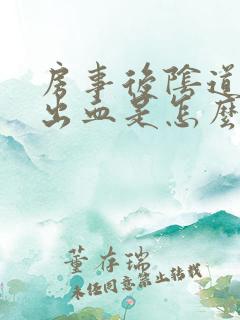 房事後陰道
出血是怎麼
董存瑞
未经同意禁止转载